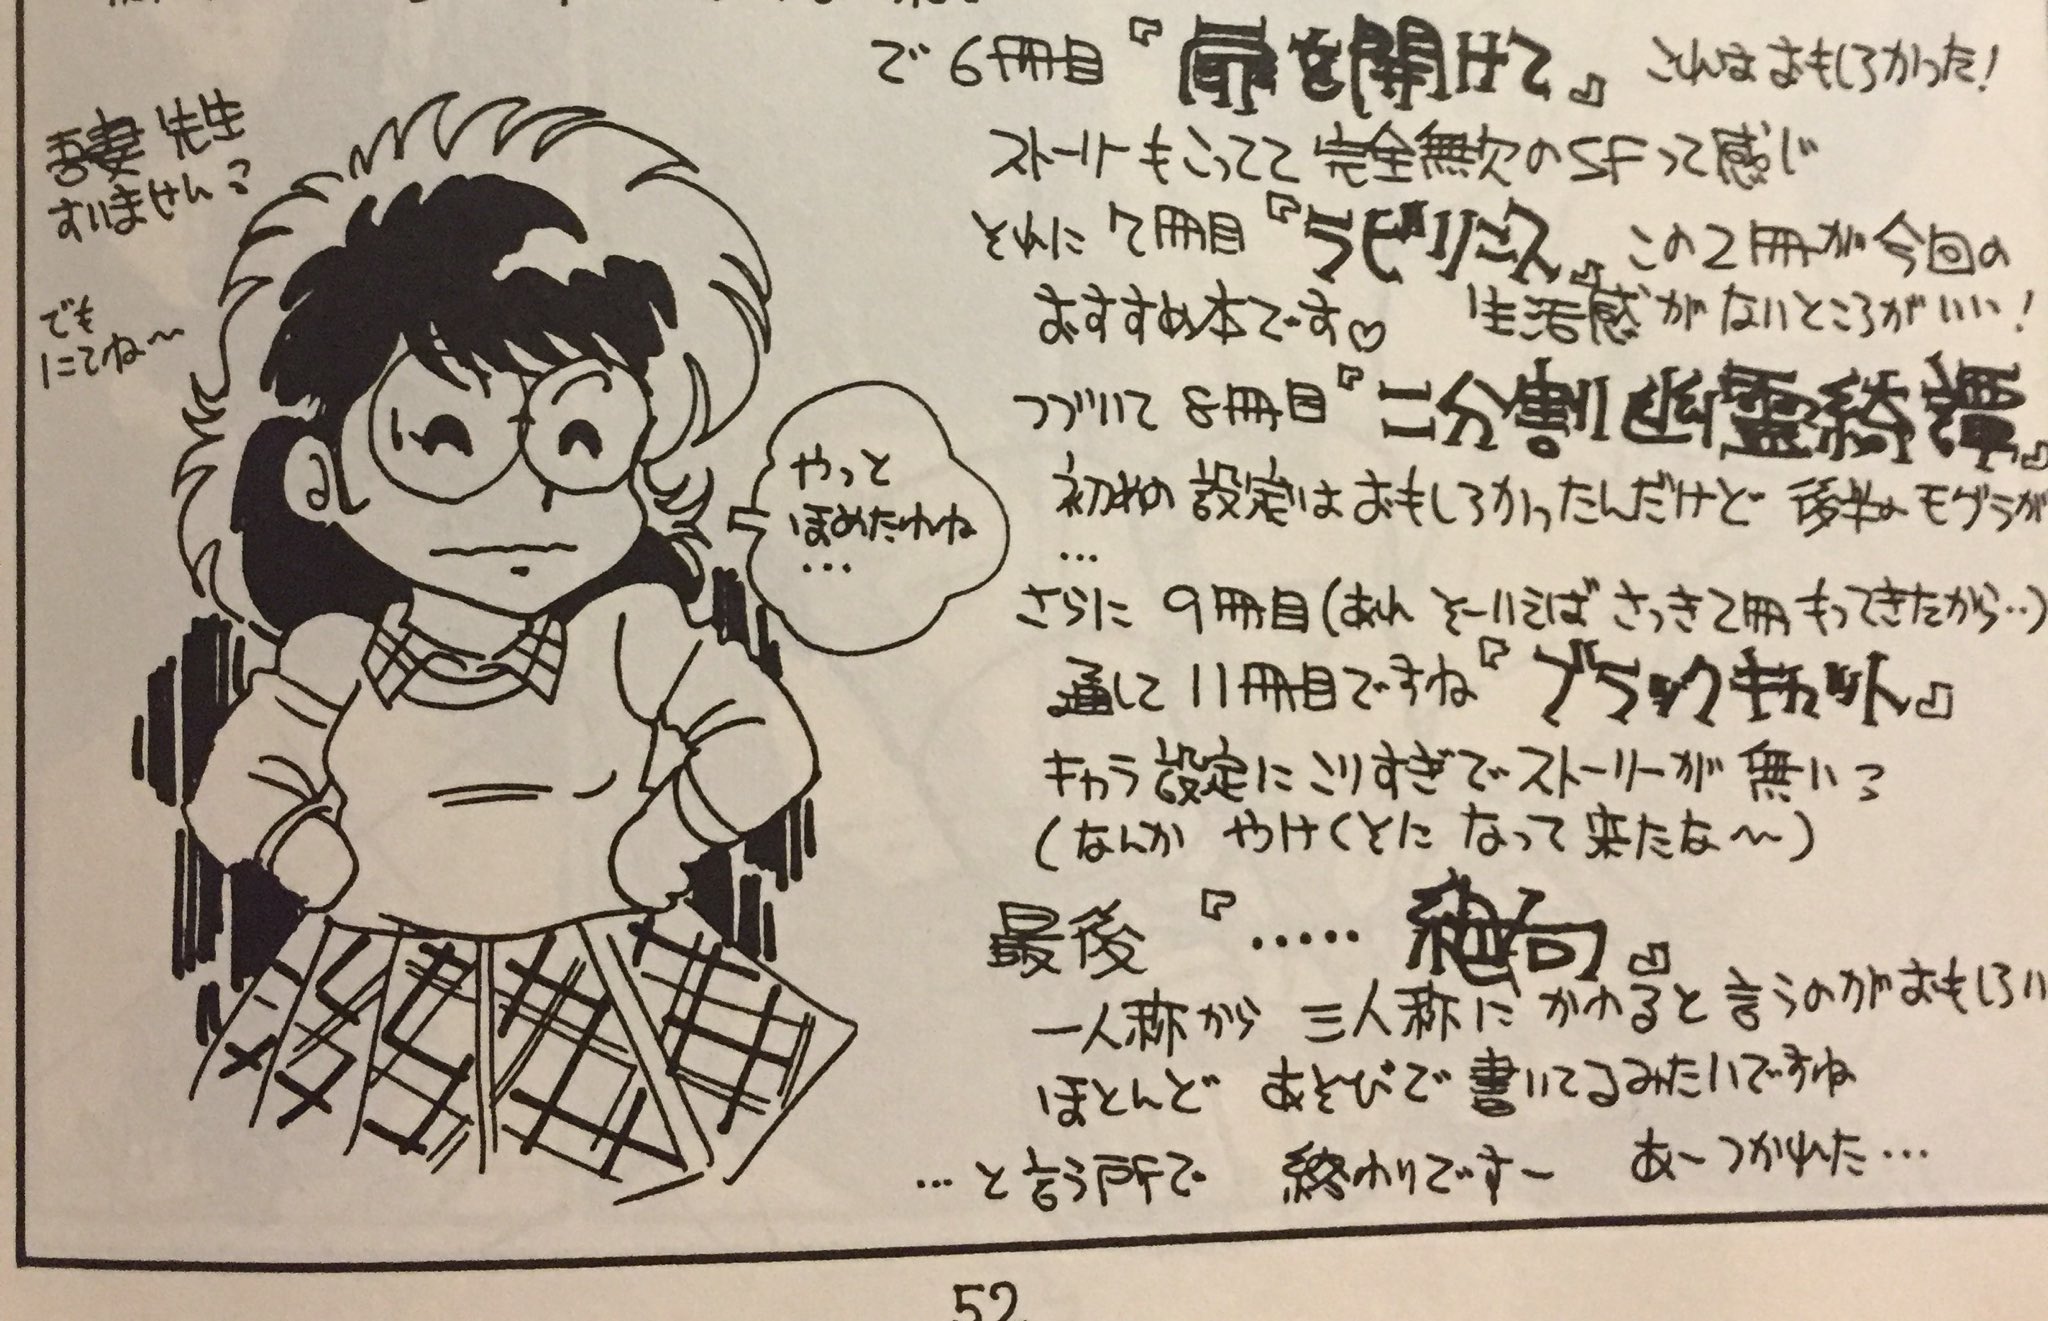 で 6冊目『扉を開けて』 これはおもしろかった!
ストーリーもこってて 完全無欠のSFって感じ
それに 7冊目『ラビリンス』この2冊が今回の
おすすめ本です♡ 生活感がないところがいい!
つづいて 8冊目『二分割幽霊綺譚』
初めの 設定はおもしろかったんだけど 後半のモグラが
…
さらに 9冊目(あれ そーいえば さっき2冊 もってきたから‥)
通して 11冊目ですね『ブラックキャット』
キャラ設定にこりすぎでストーリーが 無い
(なんか やけくそに なって 来たな〜)
最後 『‥‥‥絶句』
一人称から 三人称に かわると 言うのがおもしろい
ほとんど あそびで 書いてるみたいですね
…と言う所で 終わりですー あーつかれた…
吾妻先生
すいません
でも
にてね〜
やっと
ほめたわね
…
52